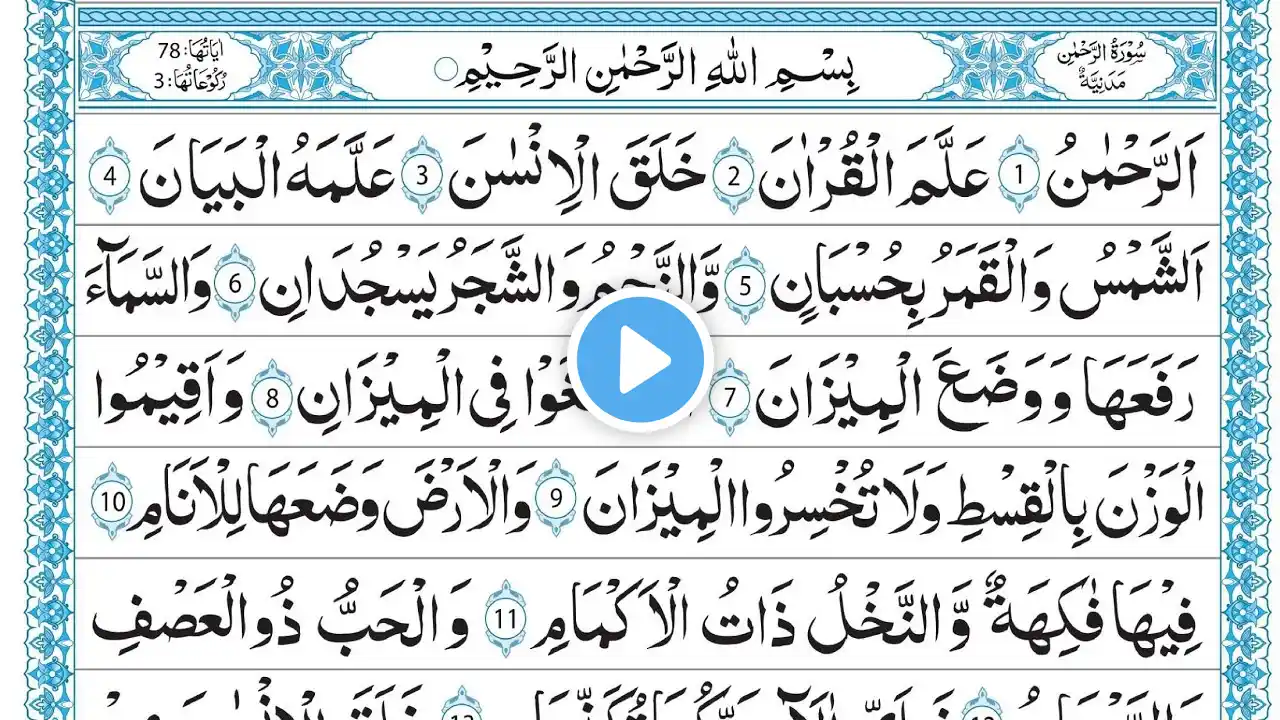 سُوْرَةُ الرَّحْمٰنِ
مَدَنِيَّةٌ
بِسْمِ اللهِ الرَّحْمٰنِ الرَّحِيْمِ
اٰيَاتُهَا: 78
رُكُوْعَاتُهَا: 3
اَلرَّحْمٰنُ 1 عَلَّمَ الْقُرْاٰنَ 2 خَلَقَ الْاِنْسٰنَ 3 عَلَّمَهُ الْبَيَانَ 4
اَلشَّمْسُ وَالْقَمَرُ بِحُسْبَانٍ 5 وَّالنَّجْمُ وَالشَّجَرُ يَسْجُدَانِ 6 وَالسَّمَآءَ
رَفَعَهَا وَوَضَعَ الْمِيْزَانَ 7 فِى الْمِيْزَانِ 8 وَاَقِيْمُوا
الْوَزْنَ بِالْقِسْطِ وَلَا تُخْسِرُوا الْمِيْزَانَ 9 وَالْاَرْضَ وَضَعَهَا لِلْاَنَامِ 10
فِيْهَا فَاكِهَةٌ وَّالنَّخْلُ ذَاتُ الْاَكْمَامِ 11 وَالْحَبُّ ذُو الْعَصْفِ